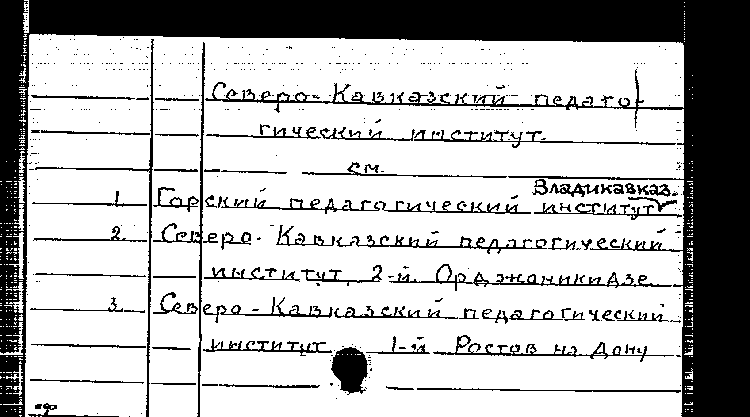 Северо-Кавказский педаго-
гический институт.
см.
Владикавказ.
1. Горский педагогический институт
2. Северо-Кавказский педагогический
институт, 2-й. Орджоникидзе
3. Северо-Кавказский педагогический
институт 1-й Ростов на Дону